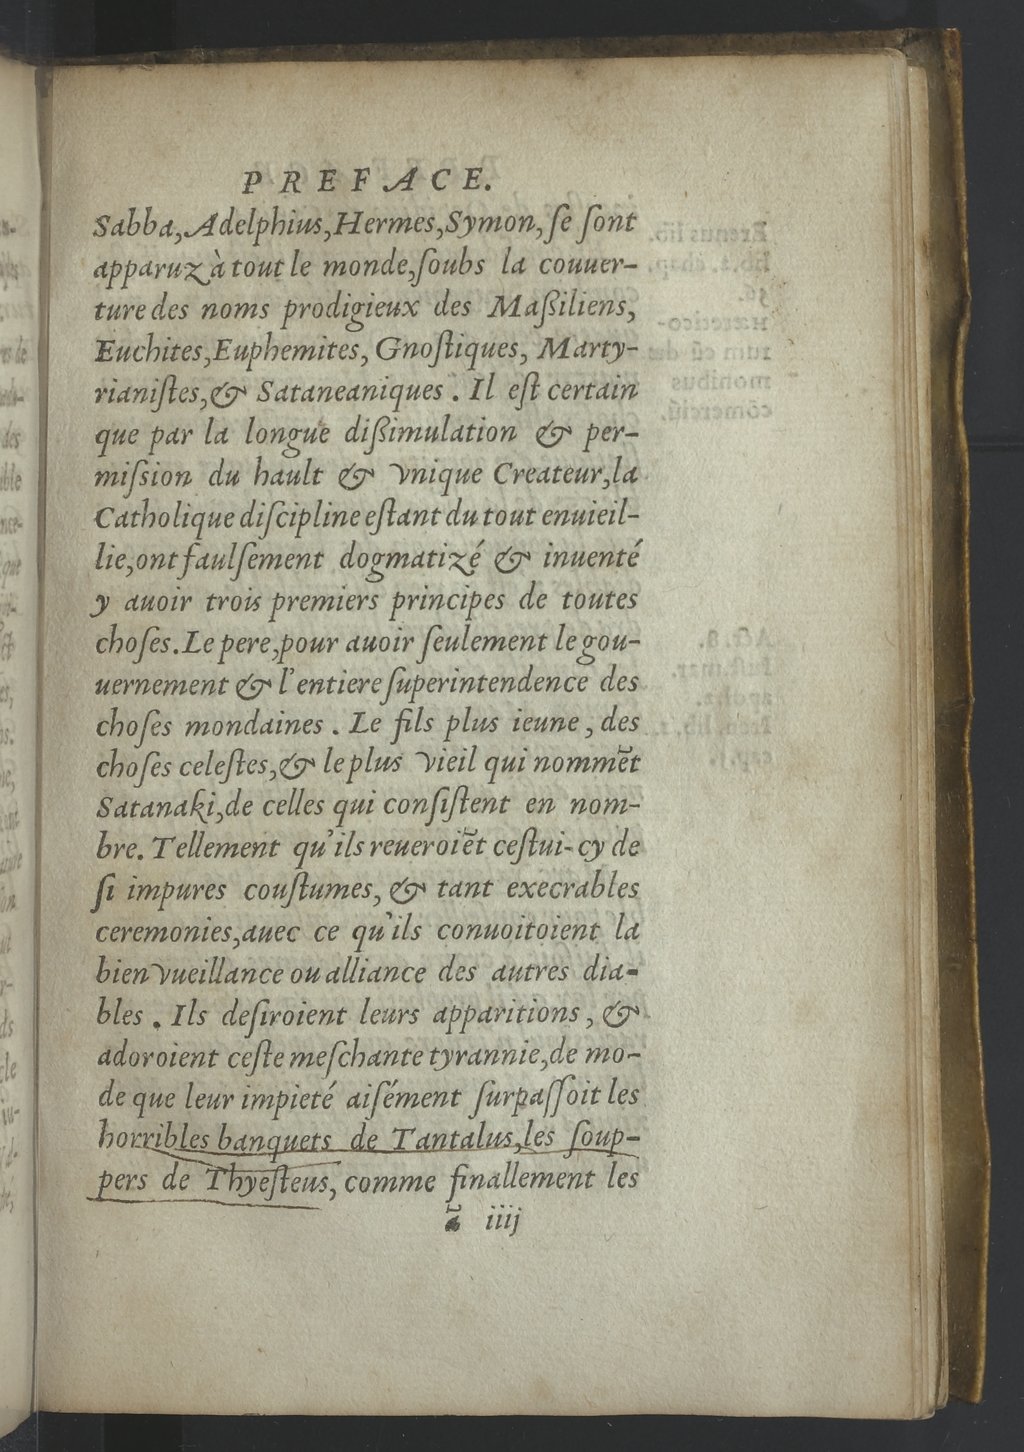 PREFACE.
Sabba, Adelphius, Hermes, Symon, ſe ſont
apparuz à tout le monde, ſoubs la couuer-
ture des noms prodigieux des Maßiliens,
Euchites, Euphemites, Gnoſtiques, Marty-
rianiſtes, & Sataneaniques. Il eſt certain
que par la longue dißimulation & per-
miſsion du hault & vnique Createur, la
Catholique diſcipline eſtant du tout enuieil-
lie, ont faulſement dogmatizé & inuenté
y auoir trois premiers principes de toutes
choſes. Le pere, pour auoir ſeulement le gou-
uernement & l'entiere ſuperintendence des
choſes mondaines. Le fils plus ieune, des
choſes celeſtes, & le plus vieil qui nommẽt
Satanaki, de celles qui conſiſtent en nom-
bre. Tellement qu'ils reueroiẽt ceſtui-cy de
ſi impures couſtumes, & tant execrables
ceremonies, auec ce qu'ils conuoitoient la
bien vueillance ou alliance des autres dia-
bles. Ils deſiroient leurs apparitions, &
adoroient ceſte meſchante tyrannie, de mo-
de que leur impieté aiſément ſurpaſſoit les
horribles banquets de Tantalus, les ſoup-
pers de Thyeſteus, comme finallement les
ã iiij